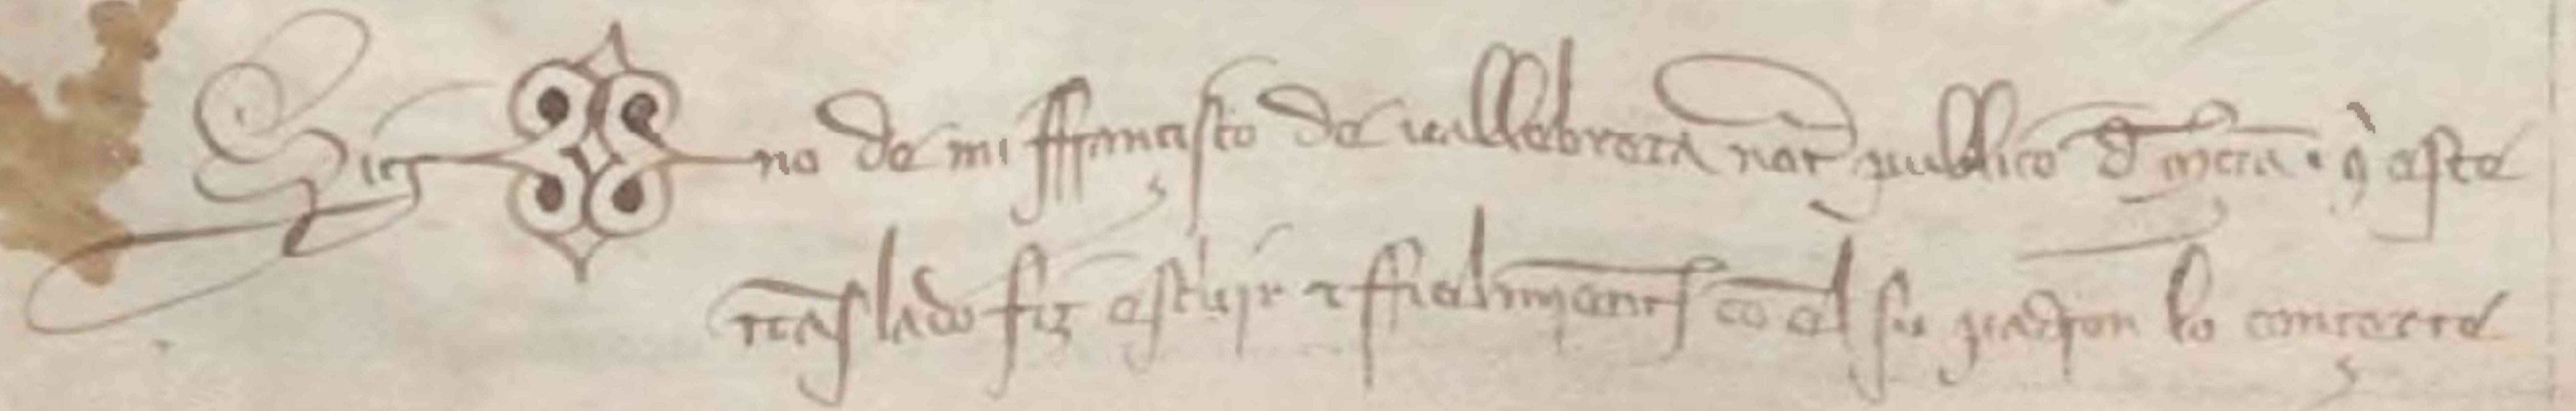 Sig no de mi ffrancisco de vallebrera not publico d murcia q este
traslado fiz escreuir e fielmente co el su padron lo concerte